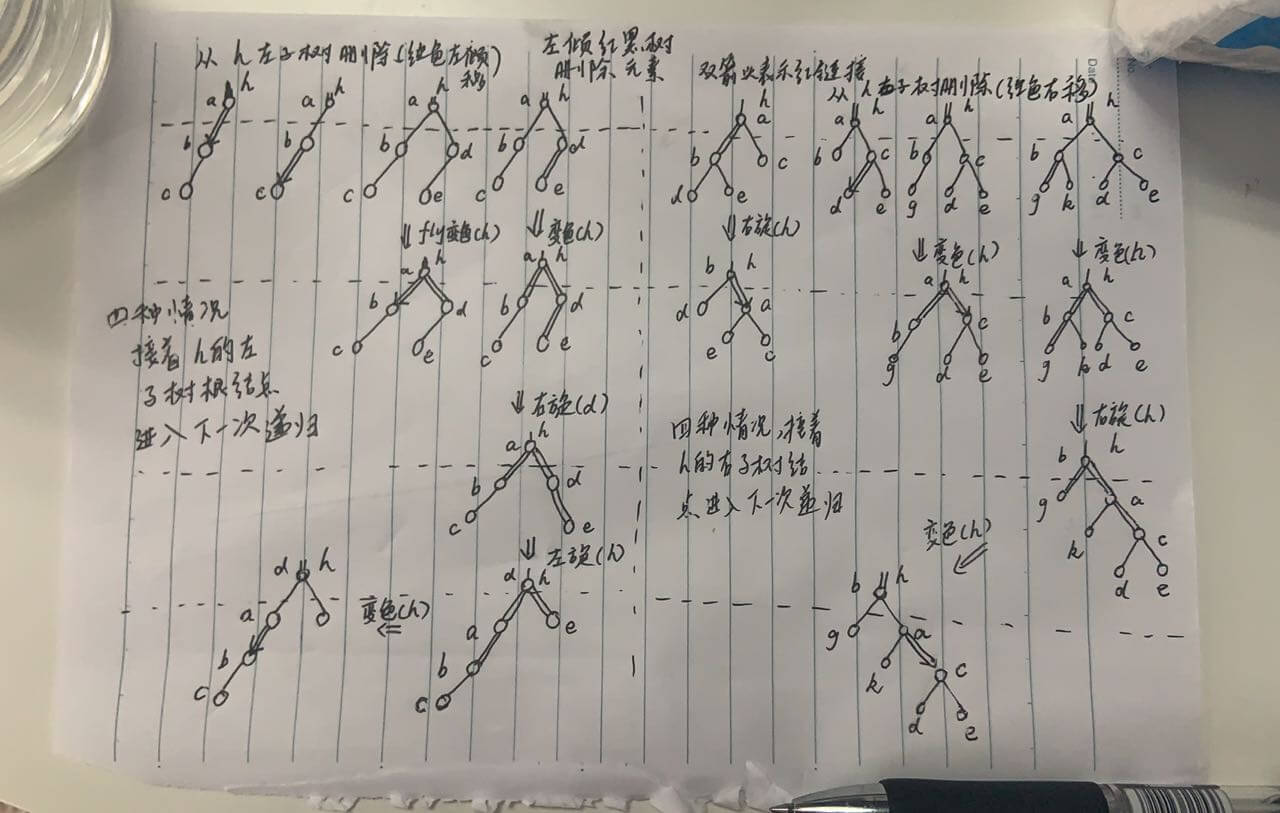 从 h 左子树删除(红色左倾
移)
左倾红黑树
删除元素
双箭头表示红链接
从 h 右子树删除(红色右移)
a h
b
c
a h
b
c
a h
b d
c e
a h
b d
c e
h
a
b c
d e
a h
b c
d e
a h
b c
g d e
a h
b c
g k d e
⇓ fly变色(h)
⇓ 变色(h)
⇓ 右旋(h)
⇓ 变色(h)
⇓ 变色(h)
a h
b d
c e
a h
b d
c e
b h
d a
e c
a h
b c
g d e
a h
b c
g k d e
四种情况
接着 h 的左
子树根结点
进入下一次递归
⇓ 右旋(d)
a h
b d
c e
四种情况,接着
h的右子树结
点进入下一次递归
⇓ 右旋(h)
b h
g a
k c
d e
⇓ 左旋(h)
d h
a e
b
c
变色(h)
⇐
d h
a
b
c
变色(h)
⇐
b h
g a
k c
d e